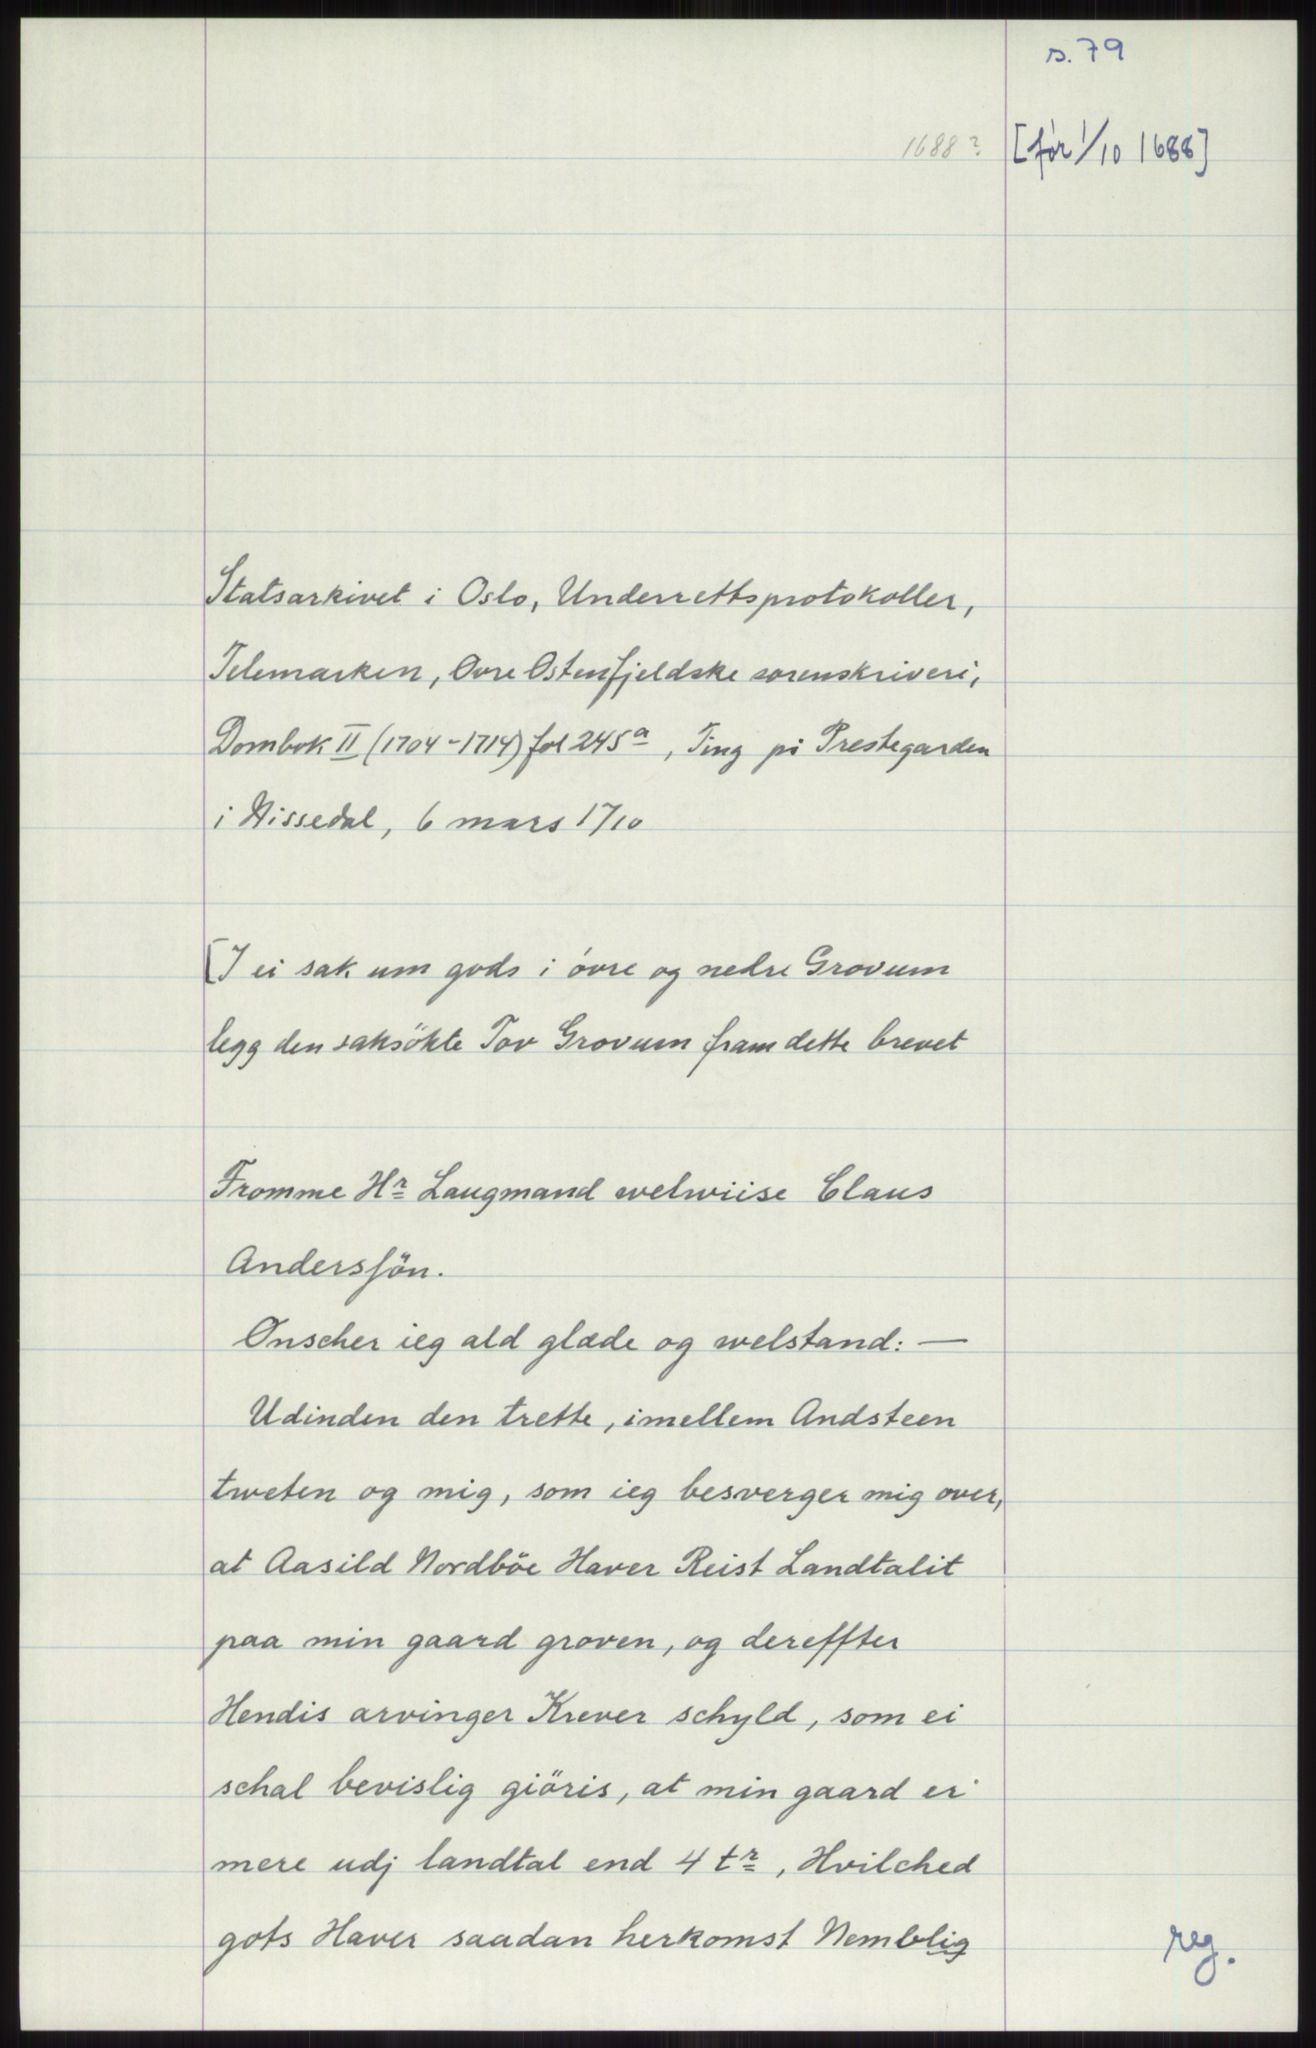 s. 79
1688? [før 1/10 1688]
Statsarkivet i Oslo, Underrettsprotokoller,
Telemarken, Øvre Østenfjeldske sorenskriveri,
Dombok II (1704-1714) fol 245a, Ting på Prestegarden
i Nissedal, 6 mars 1710
[I ei sak um gods i øvre og nedre Grovum
legg den saksökte Tov Grovum fram dette brevet
Fromme Hr Laugmand welwiise Claus
Andersfön.
Ønscher ieg ald glæde og welstand: —
Udinden den trette, imellem Andsteen
tweten og mig, som ieg besverger mig over,
at Aasild Nordböe Haver Reist Landtalit
paa min gaard groven, og dereffter
Hendis arvinger Krever schyld, som ei
schal bevislig giöris, at min gaard er
mere udj landtal end 4 tr, Hvilched
gots Haver saadan herkomst Nemblig
reg.